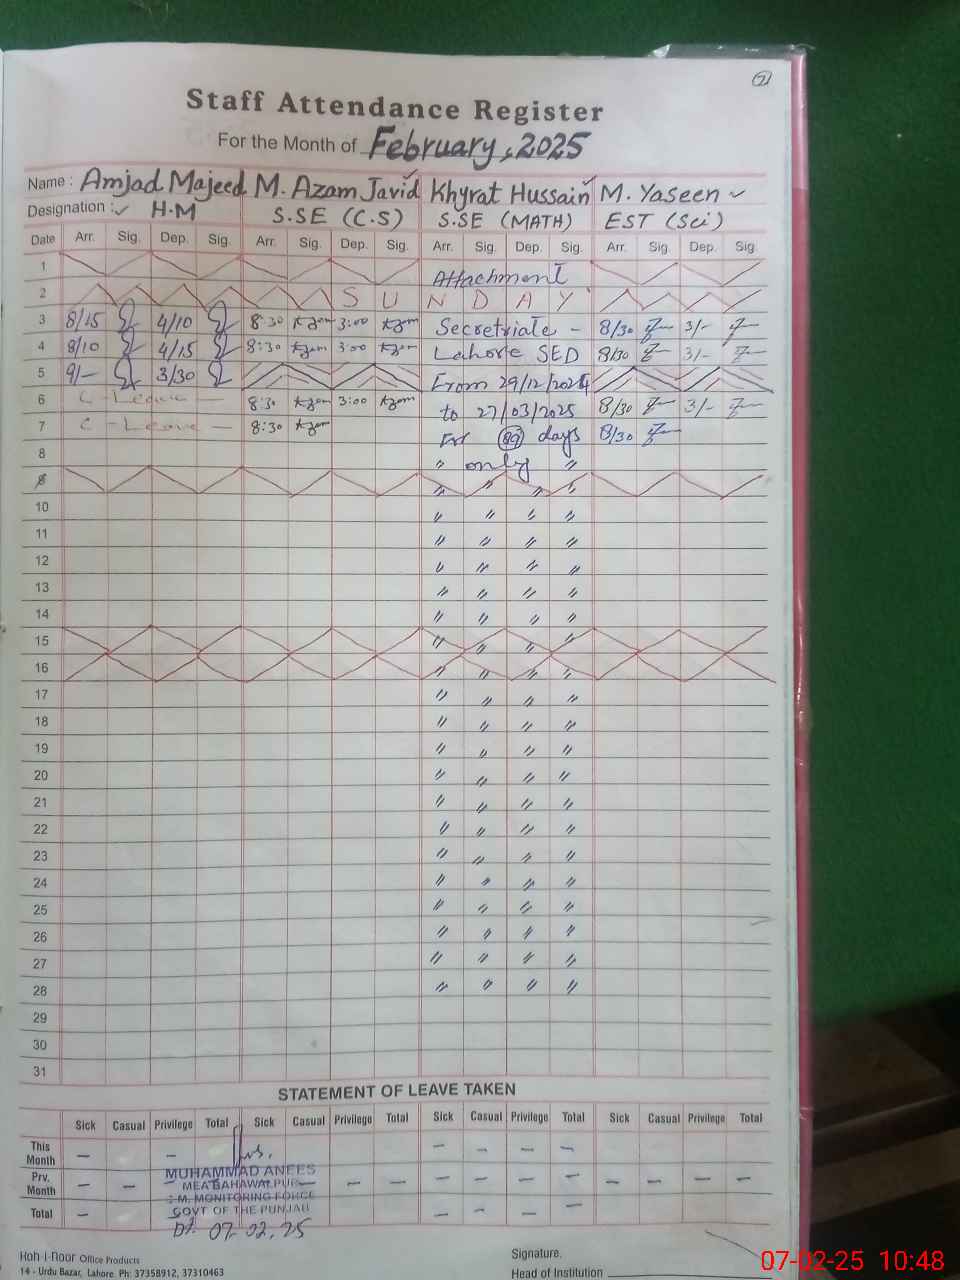 71
Staff Attendance Register
For the Month of February, 2025
Name : Amjad Majeed M. Azam Javid Khyrat Hussain M. Yaseen
Designation : H.M S.SE (C.S) S.SE (MATH) EST (Sci)
Date Arr. Sig. Dep. Sig. Arr. Sig. Dep. Sig. Arr. Sig. Dep. Sig. Arr. Sig. Dep. Sig.
1 Attachment
2 S U N D A Y
3 8/15 4/10 8:30 Azam 3:00 Azam Secretriate - 8/30 3/-
4 8/10 4/15 8:30 Azam 3:00 Azam Lahore SED 8/30 3/-
5 9/- 3/30 From 29/12/2024
6 C-Leave — 8:30 Azam 3:00 Azam to 27/03/2025 8/30 3/-
7 C-Leave — 8:30 Azam For 89 days 8/30
8 〃 only 〃
9 〃 〃 〃 〃
10 〃 〃 〃 〃
11 〃 〃 〃 〃
12 〃 〃 〃 〃
13 〃 〃 〃 〃
14 〃 〃 〃 〃
15 〃 〃 〃 〃
16 〃 〃 〃 〃
17 〃 〃 〃 〃
18 〃 〃 〃 〃
19 〃 〃 〃 〃
20 〃 〃 〃 〃
21 〃 〃 〃 〃
22 〃 〃 〃 〃
23 〃 〃 〃 〃
24 〃 〃 〃 〃
25 〃 〃 〃 〃
26 〃 〃 〃 〃
27 〃 〃 〃 〃
28 〃 〃 〃 〃
29
30
31
STATEMENT OF LEAVE TAKEN
Sick Casual Privilege Total Sick Casual Privilege Total Sick Casual Privilege Total Sick Casual Privilege Total
This Month — — — — — —
MUHAMMAD ANEES
Prv. Month — — — — — — — — — — — — —
MEA BAHAWALPUR
C.M. MONITORING FORCE
Total — — — — —
GOVT OF THE PUNJAB
Dt. 07-02.25
Koh-i-Noor Office Products
14 - Urdu Bazar, Lahore. Ph: 37358912, 37310463
Signature.
Head of Institution
07-02-25 10:48